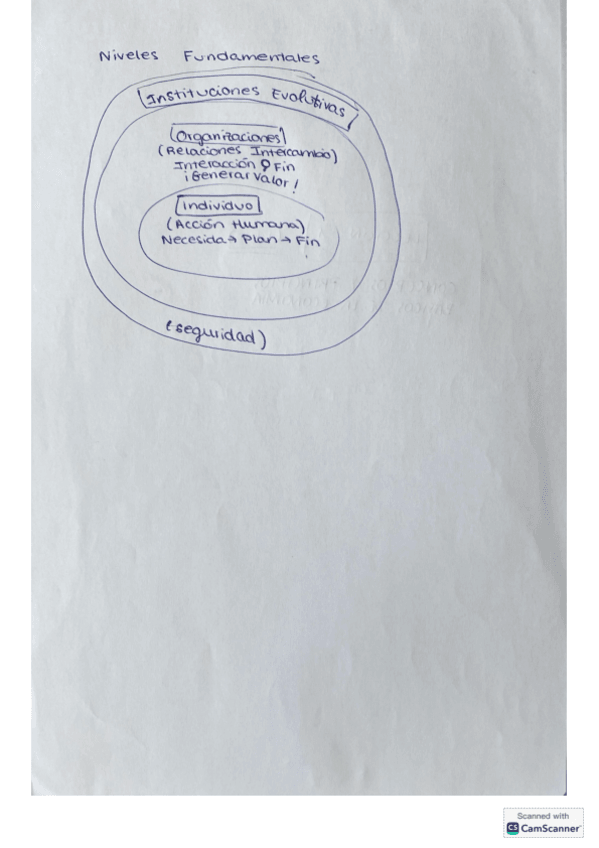 Niveles Fundamentales
Instituciones Evolutivas
Organizaciones
(Relaciones Intercambio)
Interacción Fin
¡Generar Valor!
Individuo
(Acción Humana)
Necesida → Plan → Fin
(seguridad)
Scanned with
CS CamScanner